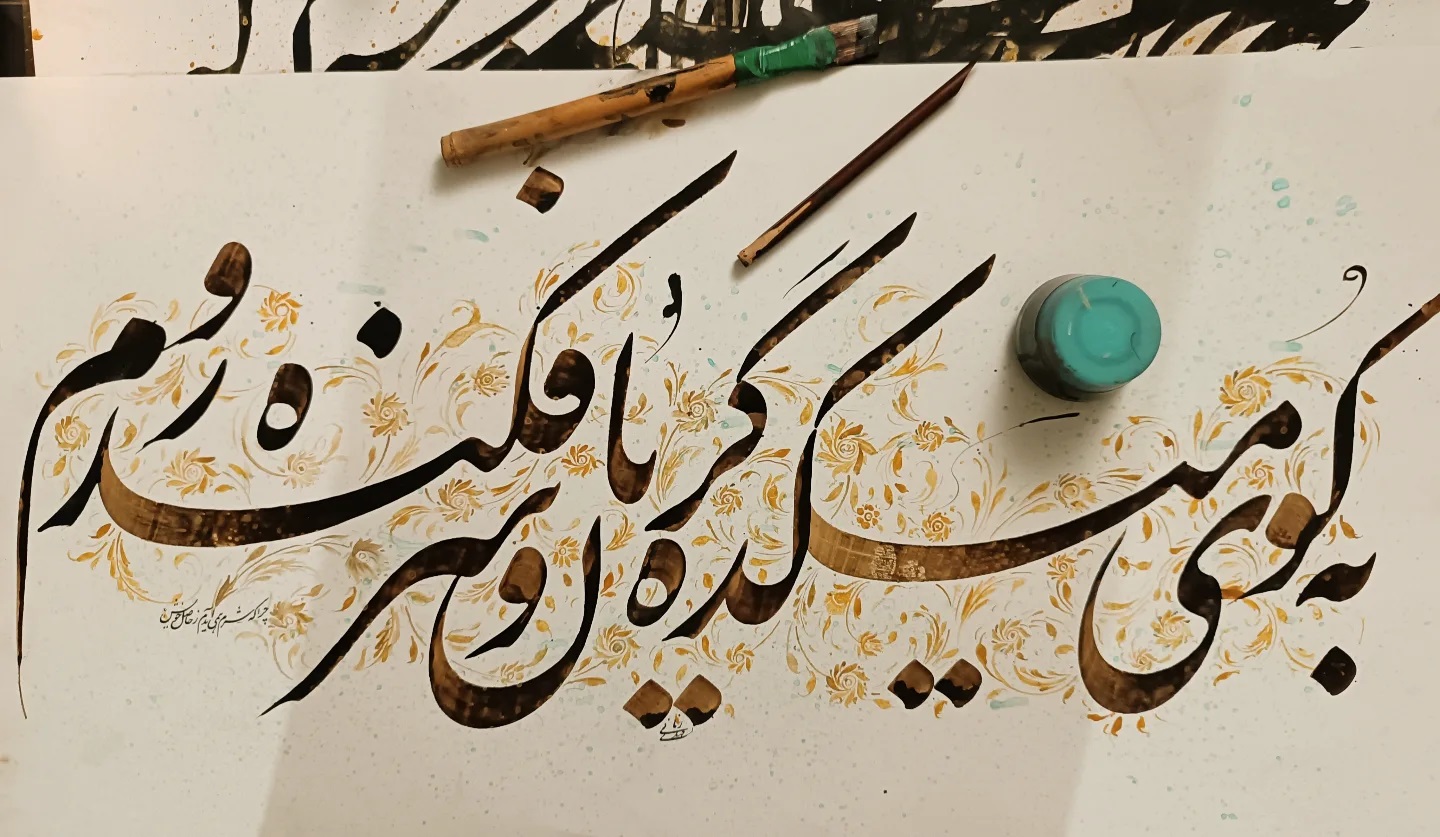 به کوی میکده گریان و سرفکنده روم
چرا که شرم همی آیدم ز حاصل خویش